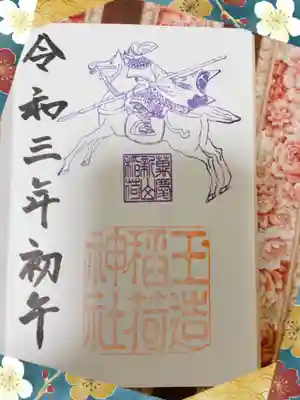 令和三年初午
稲荷
玉造
稲荷
神社